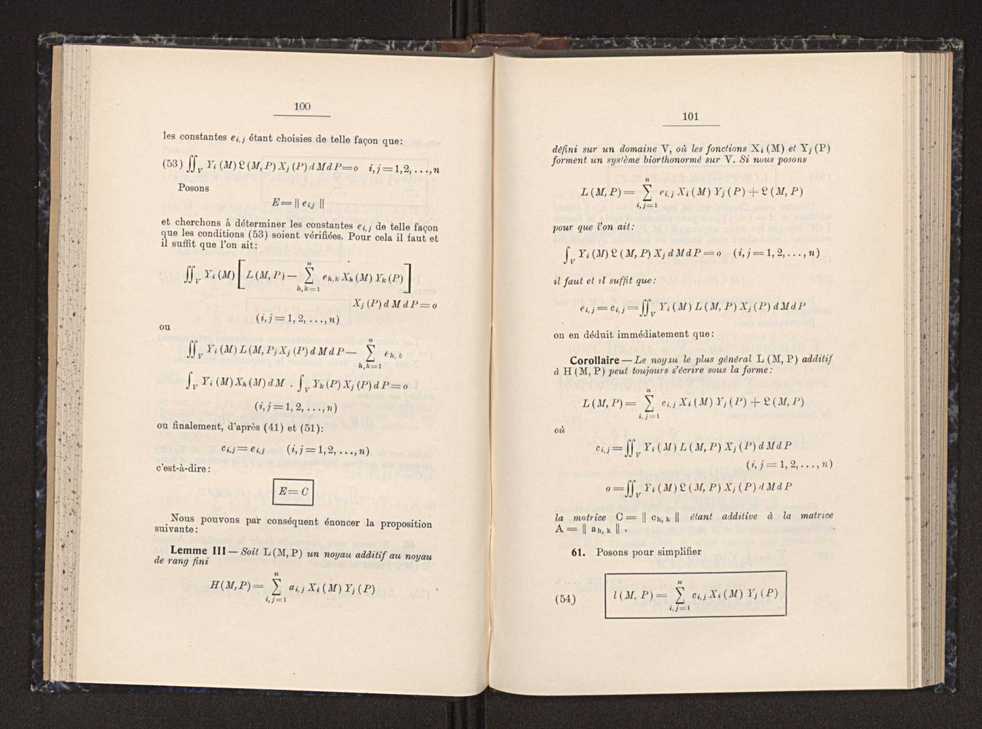 100
les constantes e_{i,j} étant choisies de telle façon que:
(53) ∬_V Y_i (M) 𝔏 (M, P) X_j (P) d M d P = o   i, j = 1, 2, ..., n
Posons
E = ‖ e_{ij} ‖
et cherchons à déterminer les constantes e_{i,j} de telle façon
que les conditions (53) soient vérifiées. Pour cela il faut et
il suffit que l'on ait:
∬_V Y_i (M) [ L (M, P) — ∑_{h,k=1}^{n} e_{h,k} X_h (M) Y_k (P) ]
X_j (P) d M d P = o
(i, j = 1, 2, ..., n)
ou
∬_V Y_i (M) L (M, P) X_j (P) d M d P — ∑_{h,k=1}^{n} e_{h,k}
∫_V Y_i (M) X_h (M) d M . ∫_V Y_k (P) X_j (P) d P = o
(i, j = 1, 2, ..., n)
ou finalement, d'après (41) et (51):
c_{i,j} = e_{i,j}   (i, j = 1, 2, ..., n)
c'est-à-dire:
E = C
Nous pouvons par conséquent énoncer la proposition
suivante:
Lemme III — Soit L (M, P) un noyau additif au noyau
de rang fini
H (M, P) = ∑_{i,j=1}^{n} a_{i,j} X_i (M) Y_j (P)
101
défini sur un domaine V, où les fonctions X_i (M) et Y_j (P)
forment un système biorthonormé sur V. Si nous posons
L (M, P) = ∑_{i,j=1}^{n} e_{i,j} X_i (M) Y_j (P) + 𝔏 (M, P)
pour que l'on ait:
∫_V Y_i (M) 𝔏 (M, P) X_j d M d P = o   (i, j = 1, 2, ..., n)
il faut et il suffit que:
e_{i,j} = c_{i,j} = ∬_V Y_i (M) L (M, P) X_j (P) d M d P
on en déduit immédiatement que:
Corollaire — Le noyau le plus général L (M, P) additif
à H (M, P) peut toujours s'écrire sous la forme:
L (M, P) = ∑_{i,j=1}^{n} c_{i,j} X_i (M) Y_j (P) + 𝔏 (M, P)
où
c_{i,j} = ∬_V Y_i (M) L (M, P) X_j (P) d M d P
(i, j = 1, 2, ..., n)
o = ∬_V Y_i (M) 𝔏 (M, P) X_j (P) d M d P
la matrice C = ‖ c_{h,k} ‖ étant additive à la matrice
A = ‖ a_{h,k} ‖ .
61. Posons pour simplifier
(54) l (M, P) = ∑_{i,j=1}^{n} c_{i,j} X_i (M) Y_j (P)